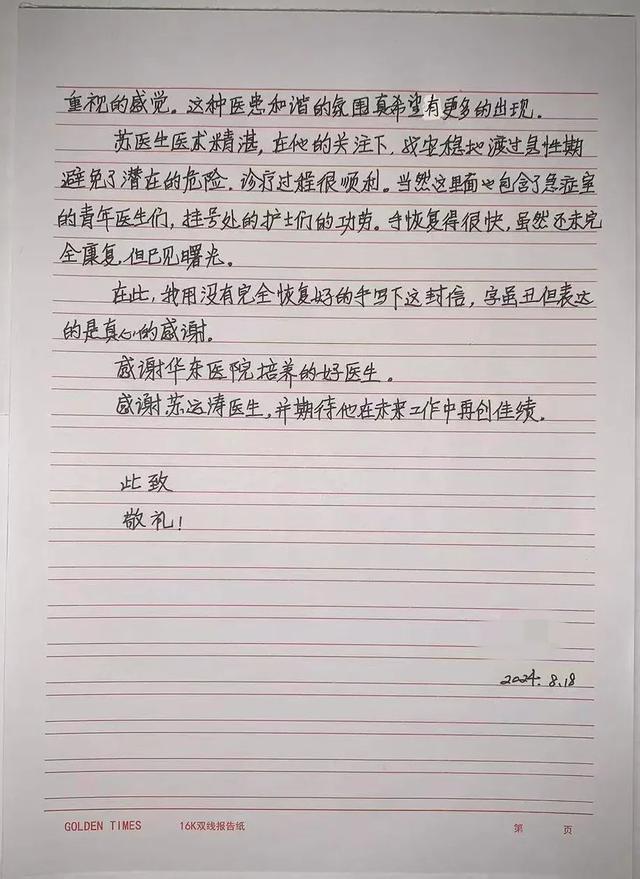 重视的感觉。这种医患和谐的氛围真希望有更多的出现。
苏医生医术精湛，在他的关注下，我安稳地渡过急性期
避免了潜在的危险，诊疗过程很顺利。当然这里面也包含了急症室
的青年医生们，挂号处的护士们的功劳。手恢复得很快，虽然还未完
全康复，但已见曙光。
在此，我用没有完全恢复好的手写下这封信，字虽丑但表达
的是真心的感谢。
感谢华东医院培养的好医生。
感谢苏远涛医生，并期待他在未来工作中再创佳绩。
此致
敬礼！
2024.8.18
GOLDEN TIMES 16K双线报告纸 第 页